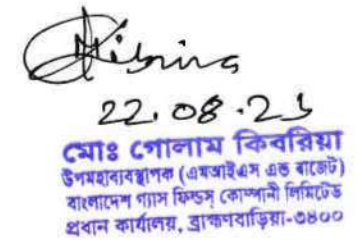 Kibria
22.08.23
মোঃ গোলাম কিবরিয়া
উপমহাব্যবস্থাপক (এমআইএস এন্ড বাজেট)
বাংলাদেশ গ্যাস ফিল্ডস্ কোম্পানী লিমিটেড
প্রধান কার্যালয়, ব্রাহ্মণবাড়িয়া-৩৪০০